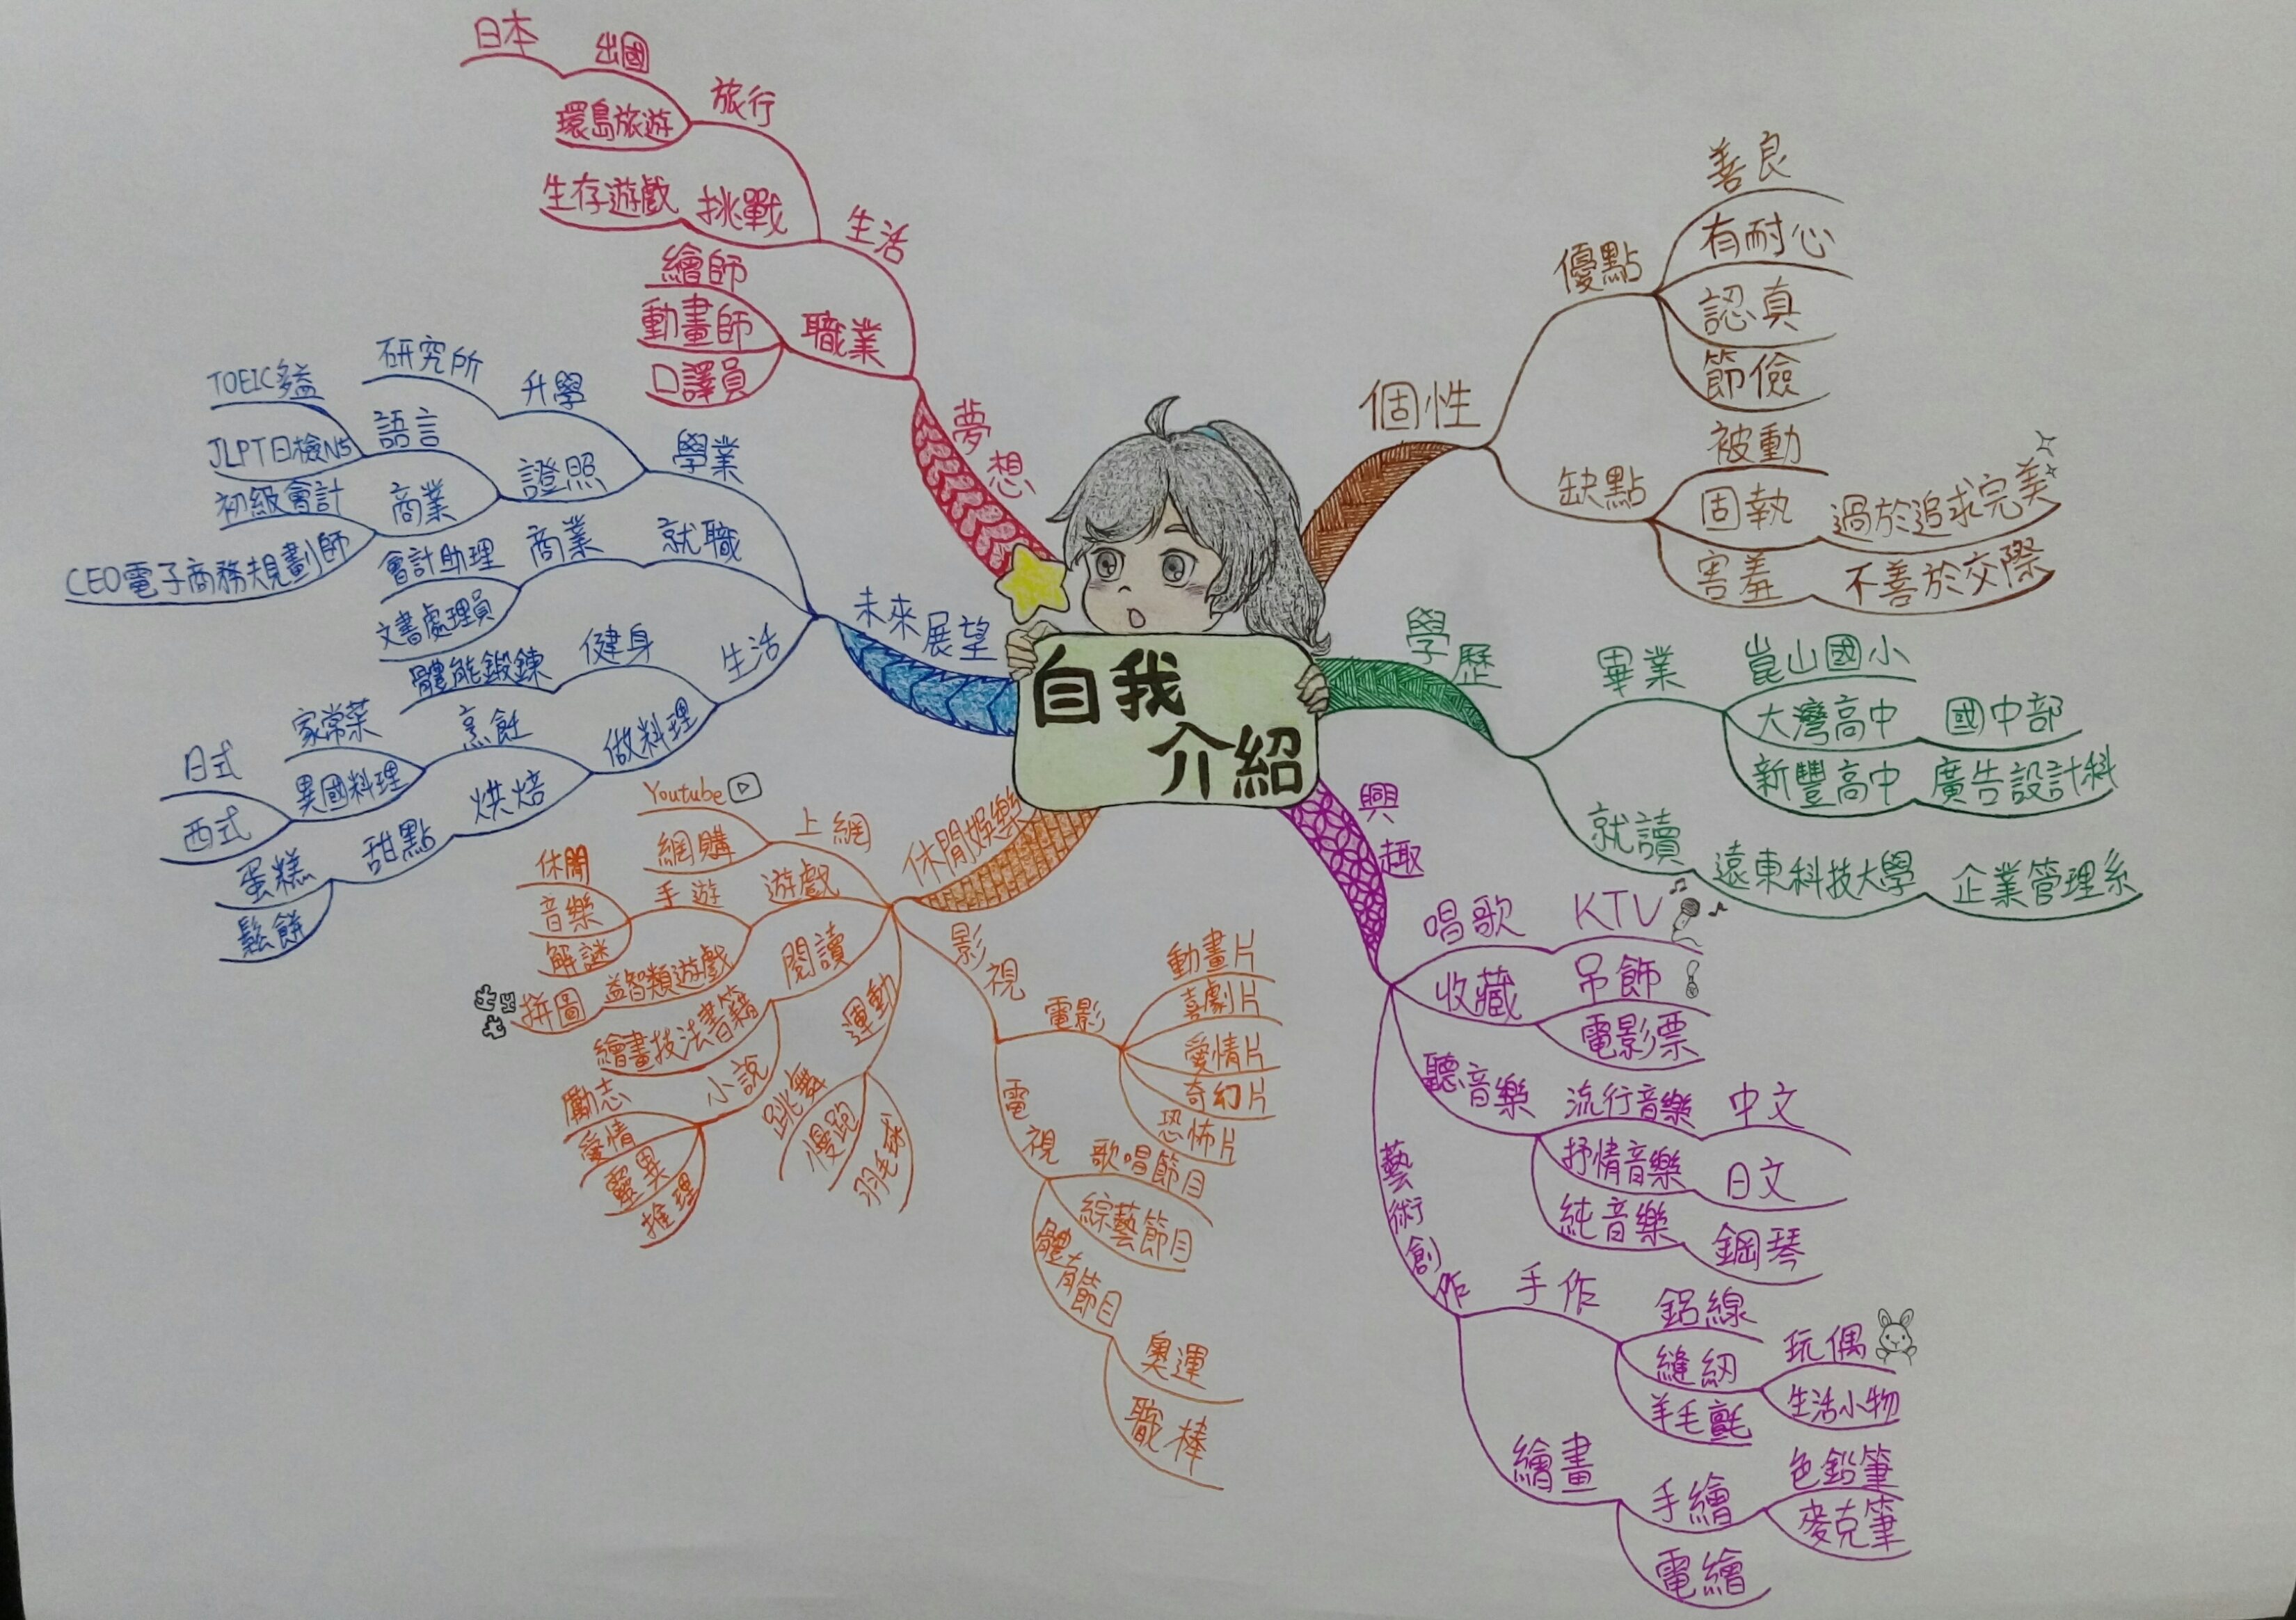 自我
介紹
個性
優點
善良
有耐心
認真
節儉
缺點
被動
固執
過於追求完美
害羞
不善於交際
學歷
畢業
崑山國小
大灣高中
國中部
新豐高中
廣告設計科
就讀
遠東科技大學
企業管理系
興趣
唱歌
KTV
收藏
吊飾
電影票
聽音樂
流行音樂
中文
抒情音樂
日文
純音樂
鋼琴
藝術創作
手作
鋁線
縫紉
玩偶
生活小物
羊毛氈
繪畫
手繪
色鉛筆
麥克筆
電繪
休閒娛樂
上網
Youtube
網購
遊戲
手遊
休閒
音樂
解謎
益智類遊戲
拼圖
閱讀
繪畫技法書籍
小說
勵志
愛情
靈異
推理
運動
跳舞
慢跑
羽毛球
影視
電影
動畫片
喜劇片
愛情片
奇幻片
恐怖片
電視
歌唱節目
綜藝節目
體育節目
奧運
職棒
未來展望
學業
升學
研究所
證照
語言
TOEIC多益
JLPT日檢N5
商業
初級會計
CEO電子商務規劃師
就職
商業
會計助理
文書處理員
生活
健身
體能鍛鍊
做料理
烹飪
家常菜
異國料理
日式
西式
烘焙
甜點
蛋糕
鬆餅
夢想
生活
旅行
出國
日本
環島旅遊
挑戰
生存遊戲
職業
繪師
動畫師
口譯員